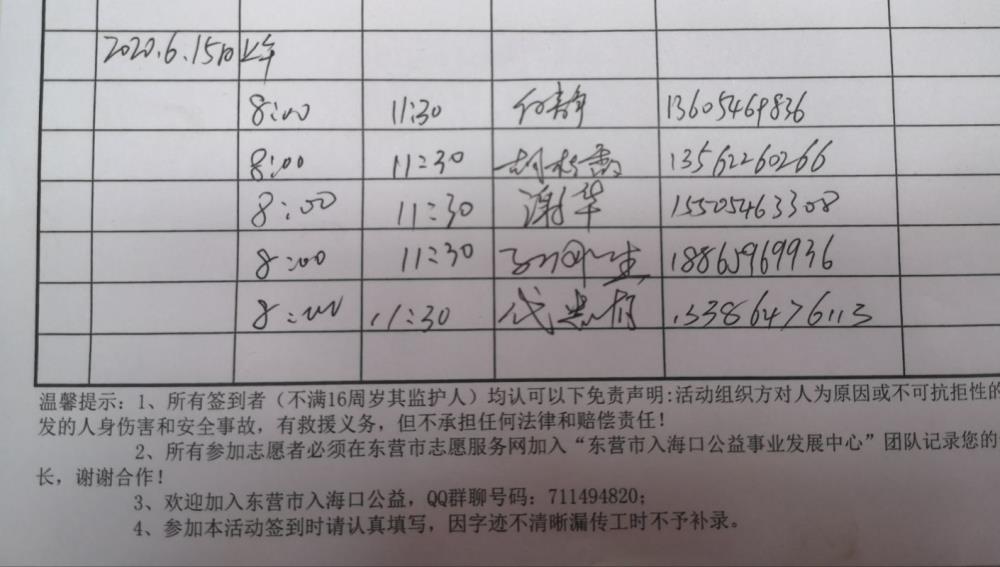 2020.6.15日上午
8:00 11:30 付静 13605469836
8:00 11:30 13562260266
8:00 11:30 谢华 15505463308
8:00 11:30 18865969936
8:00 11:30 代 13386476113
温馨提示：1、所有签到者（不满16周岁其监护人）均认可以下免责声明:活动组织方对人为原因或不可抗拒性的
发的人身伤害和安全事故，有救援义务，但不承担任何法律和赔偿责任！
2、所有参加志愿者必须在东营市志愿服务网加入“东营市入海口公益事业发展中心”团队记录您的
长，谢谢合作！
3、欢迎加入东营市入海口公益，QQ群聊号码：711494820；
4、参加本活动签到时请认真填写，因字迹不清晰漏传工时不予补录。